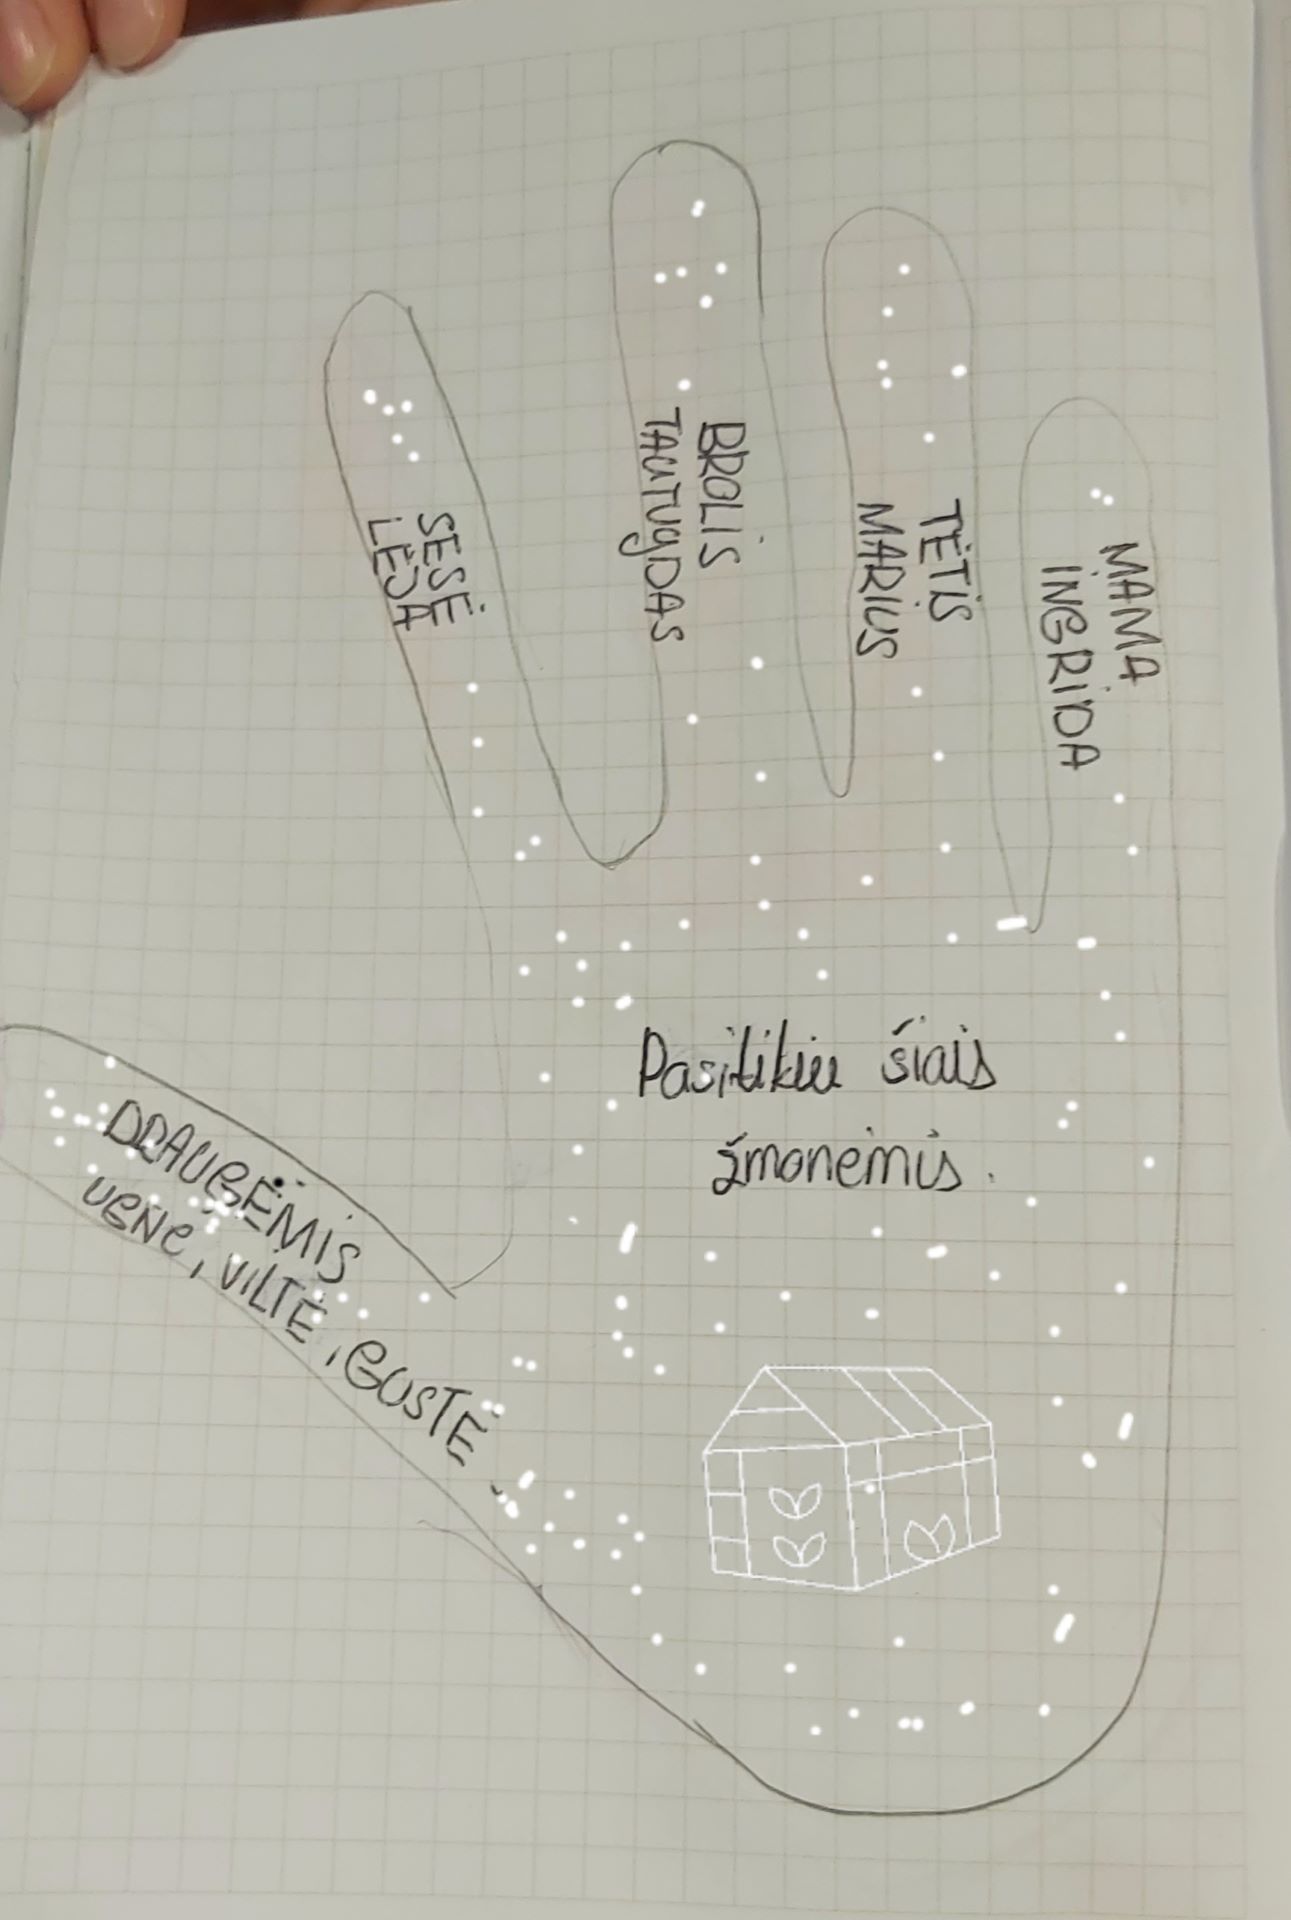 SESĖ
LĖJA
BROLIS
TAUTVYDAS
TĖTIS
MARIUS
MAMA
INGRIDA
Pasitikiu šiais
žmonėmis.
DRAUGĖMIS
UGNE, VILTĖ, GUSTĖ